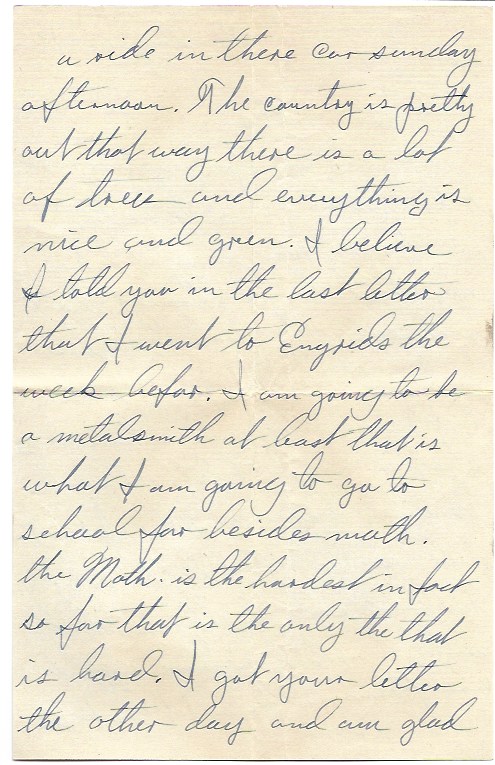 a ride in there car sunday
afternoon. The country is pretty
out that way there is a lot
of trees and everything is
nice and green. I believe
I told you in the last letter
that I went to Engrids the
week befor. I am going to be
a metalsmith at least that is
what I am going to go to
school for besides math.
the Math. is the hardest in fact
so far that is the only the that
is hard. I got your letter
the other day and am glad